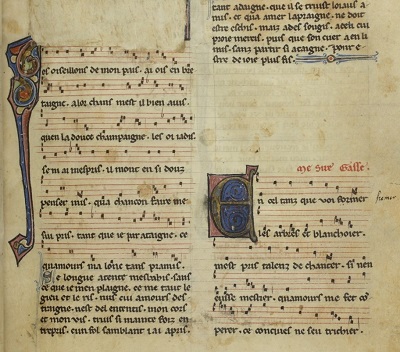 Les oiseillons de mon pais. ai ois en bre
taigne. a lor chans mest il bien auis.
quen la douce champaigne. les oi iadis.
se ni ai mespris. il mont en si douz
penser mis. qua chancon faire me
sui pris. tant que ie par ataigne. ce
quamours ma lonc tans pramis.
De longue atente mesbahis. sans
ce que ie men plaigne. ce me taut le
gieu et le ris. nus cui amours des
traigne. nest del ententis. mon cors
et mon vis. truis si mainte foiz en
trepris. cun fol samblant i ai apris.
tant adaigne. que il se truist loiaus a
mis. ce qua amer la praigne. ne doit
estre eschis. maiz ades sougis. a celi cui
proie mercis. puis que son cuer a en li
mis. sanz partir por e
stre de ioie plus fis.
Me sire Gasse.
En cel tanz que voi frimer
frimer
les arbres et blanchoier.
mest pris talenz de chanter. si nen
eusse mestier. quamours me fet co
perer. ce conques ne seu trichier.